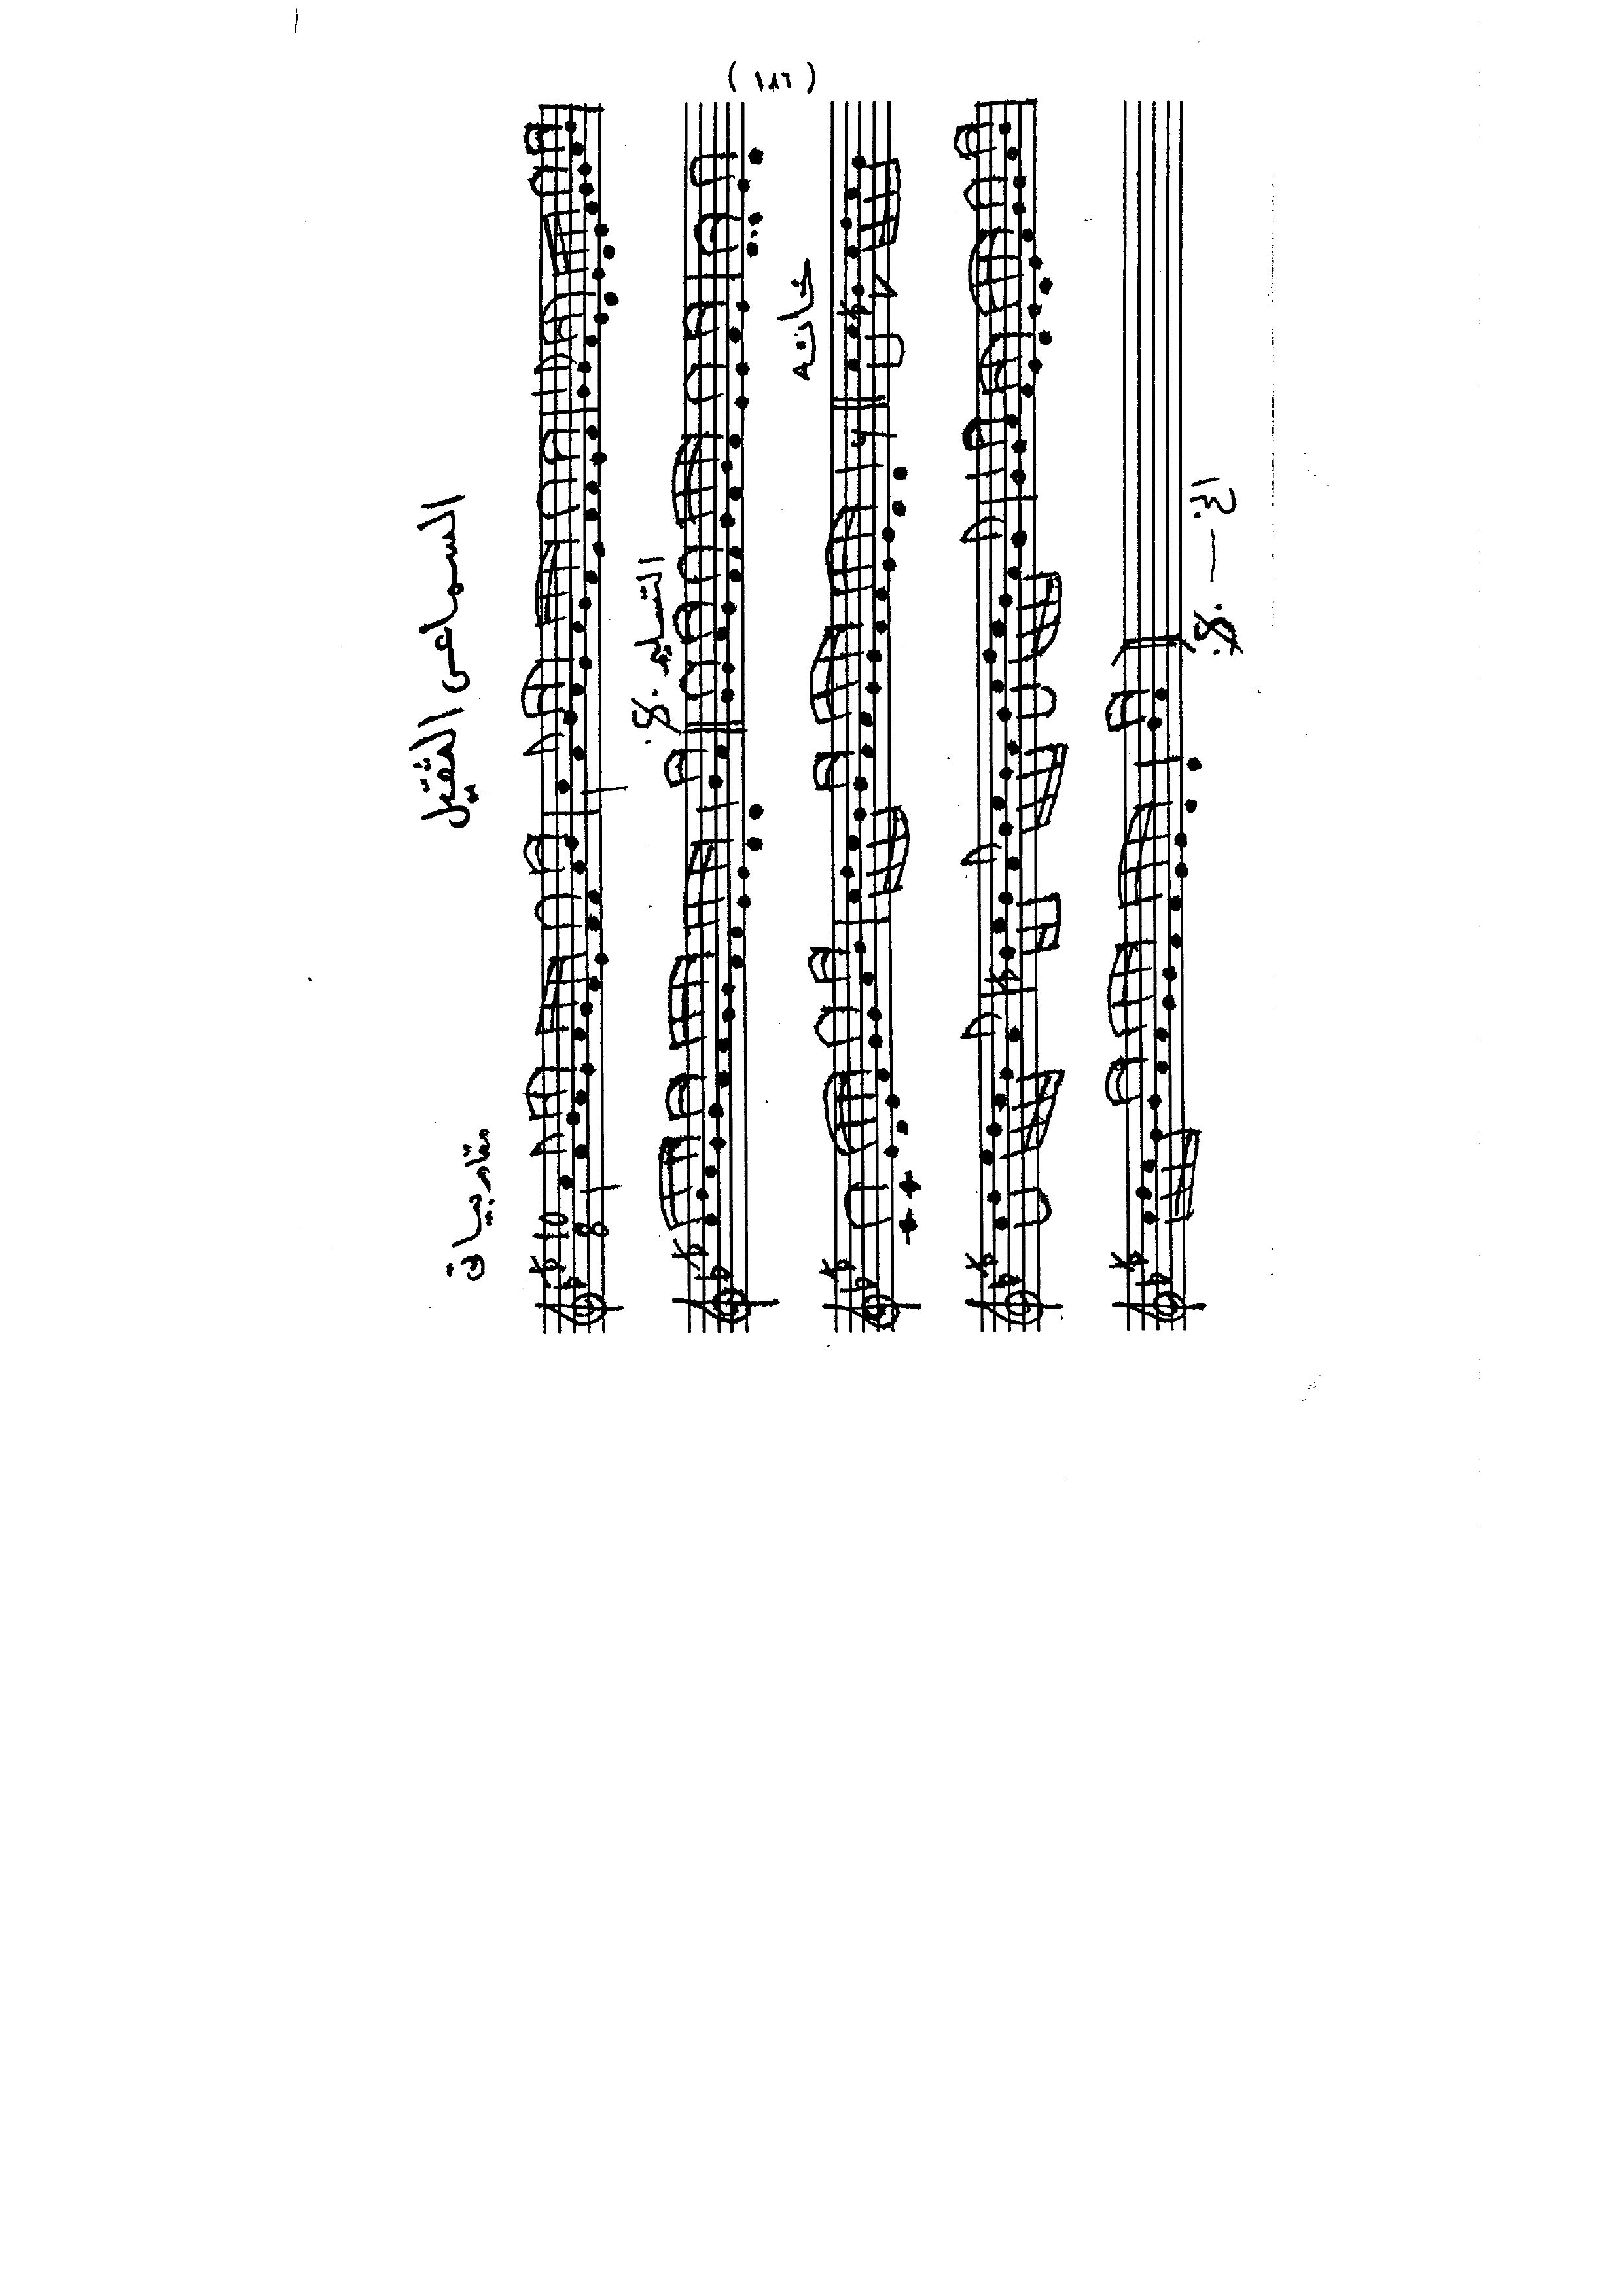 ( ١٨٦ )
السماعى الثقيل
مقام بيات
10
8
التسليم
خانة
الخ